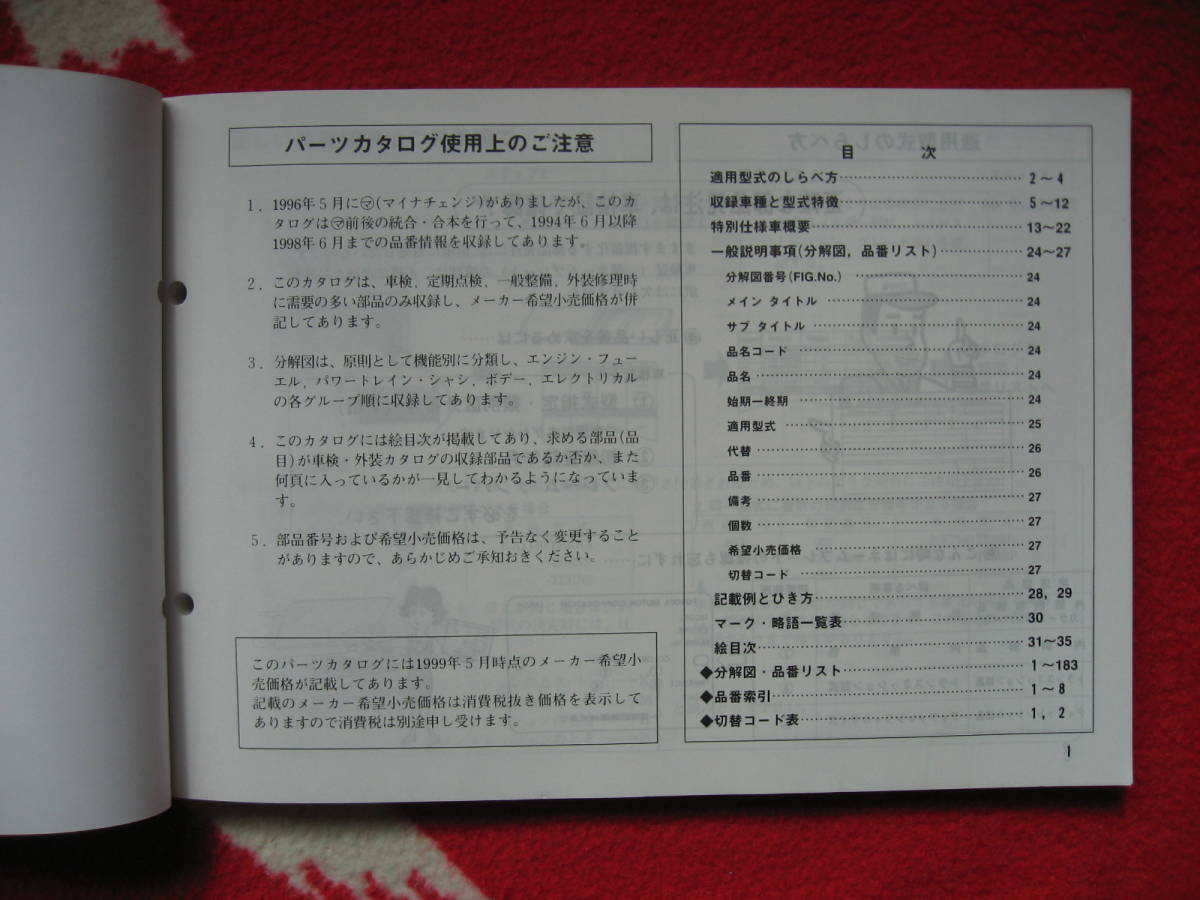 パーツカタログ使用上のご注意
1. 1996年5月に㋮(マイナチェンジ)がありましたが、このカ
タログは㋮前後の統合・合本を行って、1994年6月以降
1998年6月までの品番情報を収録してあります。
2. このカタログは、車検、定期点検、一般整備、外装修理時
に需要の多い部品のみ収録し、メーカー希望小売価格が併
記してあります。
3. 分解図は、原則として機能別に分類し、エンジン・フュー
エル、パワートレイン・シャシ、ボデー、エレクトリカル
の各グループ順に収録してあります。
4. このカタログには絵目次が掲載してあり、求める部品(品
目)が車検・外装カタログの収録部品であるか否か、また
何頁に入っているかが一見してわかるようになっていま
す。
5. 部品番号および希望小売価格は、予告なく変更すること
がありますので、あらかじめご承知おきください。
このパーツカタログには1999年5月時点のメーカー希望小
売価格が記載してあります。
記載のメーカー希望小売価格は消費税抜き価格を表示して
ありますので消費税は別途申し受けます。
目 次
適用型式のしらべ方 2～4
収録車種と型式特徴 5～12
特別仕様車概要 13～22
一般説明事項(分解図，品番リスト) 24～27
分解図番号(FIG.No.) 24
メイン タイトル 24
サブ タイトル 24
品名コード 24
品名 24
始期ー終期 24
適用型式 25
代替 26
品番 26
備考 27
個数 27
希望小売価格 27
切替コード 27
記載例とひき方 28，29
マーク・略語一覧表 30
絵目次 31～35
◆分解図・品番リスト 1～183
◆品番索引 1～8
◆切替コード表 1，2
1